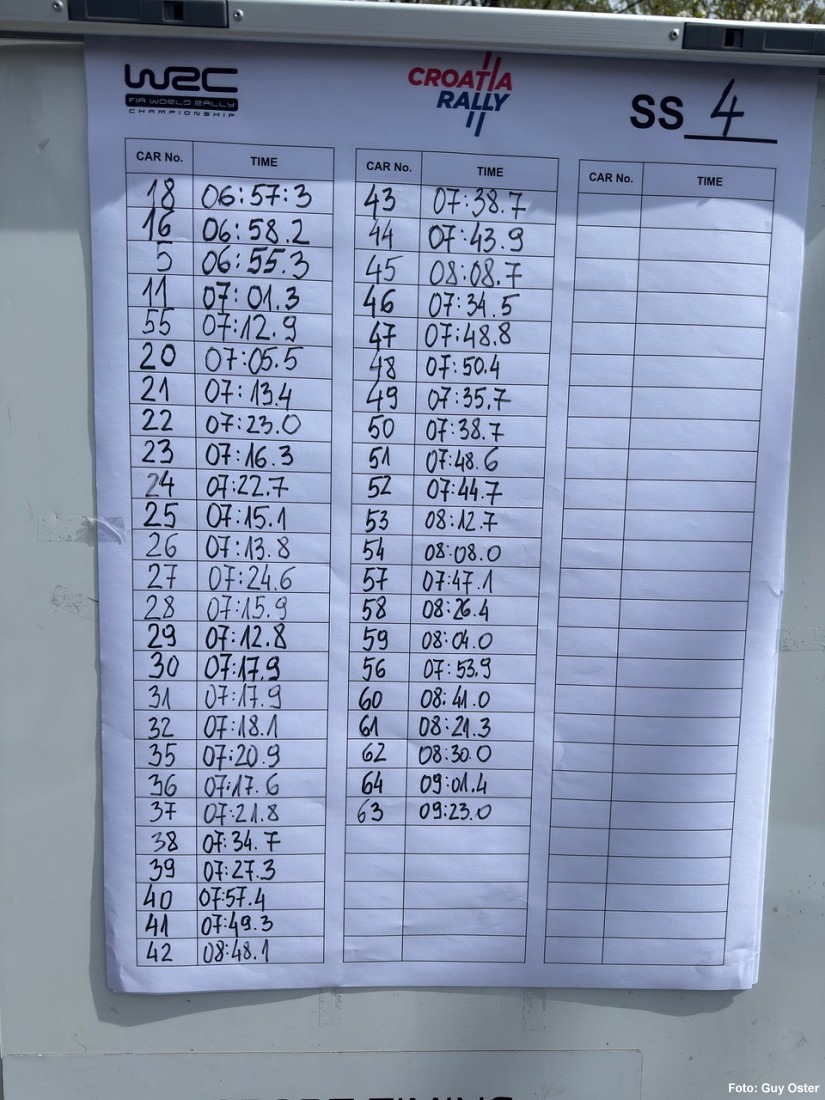 WRC
FIA WORLD RALLY
CHAMPIONSHIP
CROATIA
RALLY
SS 4
CAR No. TIME
18 06:57:3
16 06:58.2
5 06:55.3
11 07:01.3
55 07:12.9
20 07:05.5
21 07:13.4
22 07:23.0
23 07:16.3
24 07:22.7
25 07:15.1
26 07:13.8
27 07:24.6
28 07:15.9
29 07:12.8
30 07:17.9
31 07:17.9
32 07:18.1
35 07:20.9
36 07:17.6
37 07:21.8
38 07:34.7
39 07:27.3
40 07:57.4
41 07:49.3
42 08:48.1
CAR No. TIME
43 07:38.7
44 07:43.9
45 08:08.7
46 07:34.5
47 07:48.8
48 07:50.4
49 07:35.7
50 07:38.7
51 07:48.6
52 07:44.7
53 08:12.7
54 08:08.0
57 07:47.1
58 08:26.4
59 08:04.0
56 07:53.9
60 08:41.0
61 08:21.3
62 08:30.0
64 09:01.4
63 09:23.0
CAR No. TIME
Foto: Guy Oster